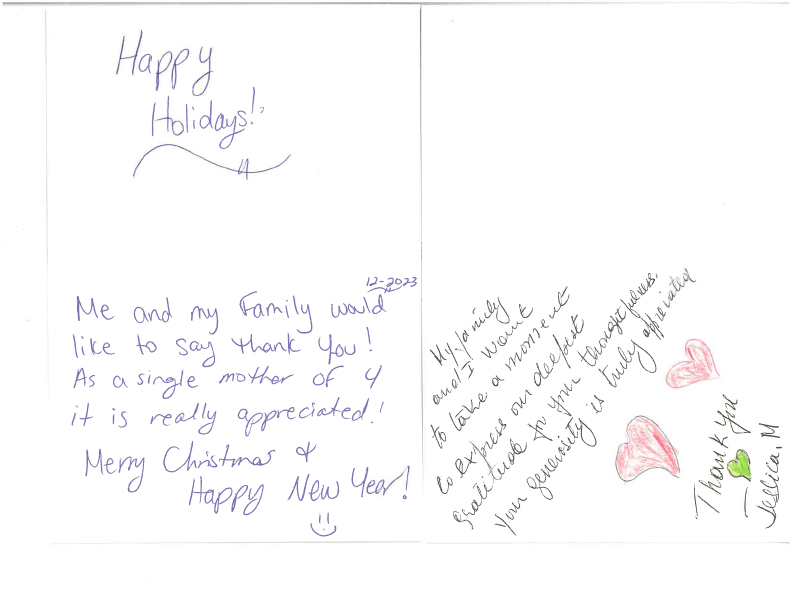 Happy
Holidays!
12-2023
Me and my Family would
like to say thank you!
As a single mother of 4
it is really appreciated!
Merry Christmas &
Happy New Year!
My family
and I want
to take a moment
to express our deepest
gratitude for your thoughtfulness.
your generosity is truly appreciated
Thank you
Jessica.M